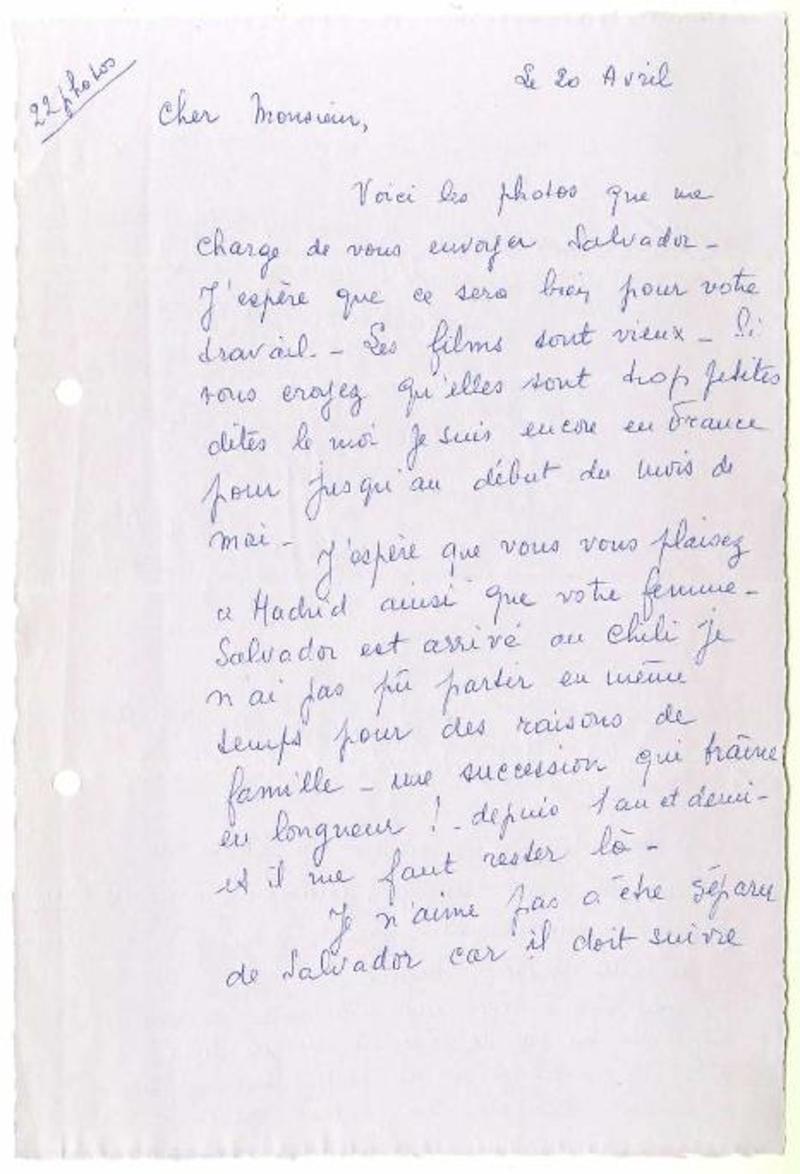 22 photos
Le 20 Avril
Cher Monsieur,
Voici les photos que me
charge de vous envoyer Salvador -
J'espère que ce sera bien pour votre
travail. - Les films sont vieux - Si
vous croyez qu'elles sont trop petites
dites le moi Je suis encore en France
pour jusqu'au début du mois de
mai - J'espère que vous vous plaisez
a Madrid ainsi que votre femme -
Salvador est arrivé au Chili je
n'ai pas pû partir en même
temps pour des raisons de
famille - une succession qui traîne
en longueur ! - depuis 1 an et demi -
et il me faut rester là -
Je n'aime pas a être séparée
de Salvador car il doit suivre